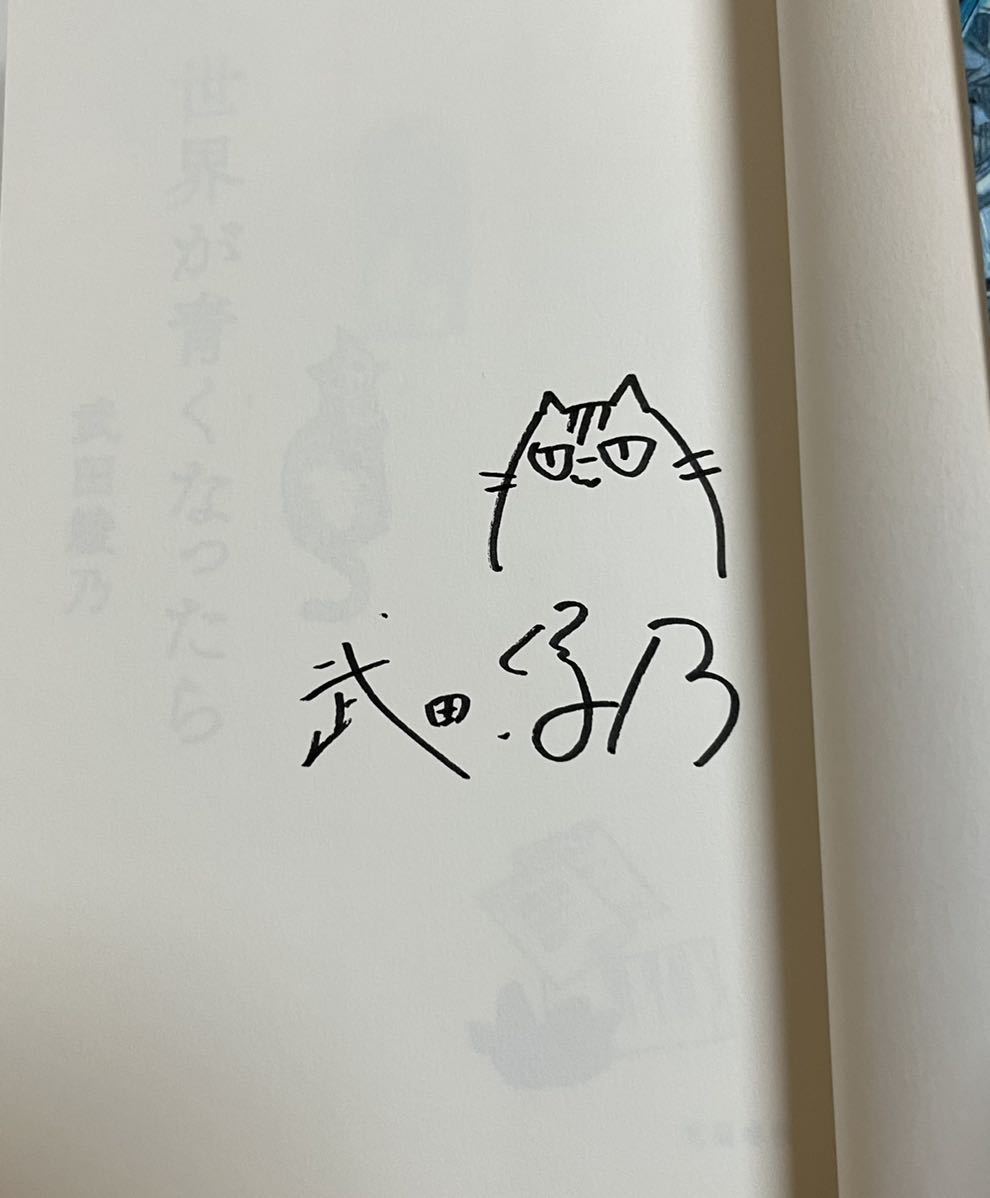 世界が青くなったら
武田綾乃
武田綾乃